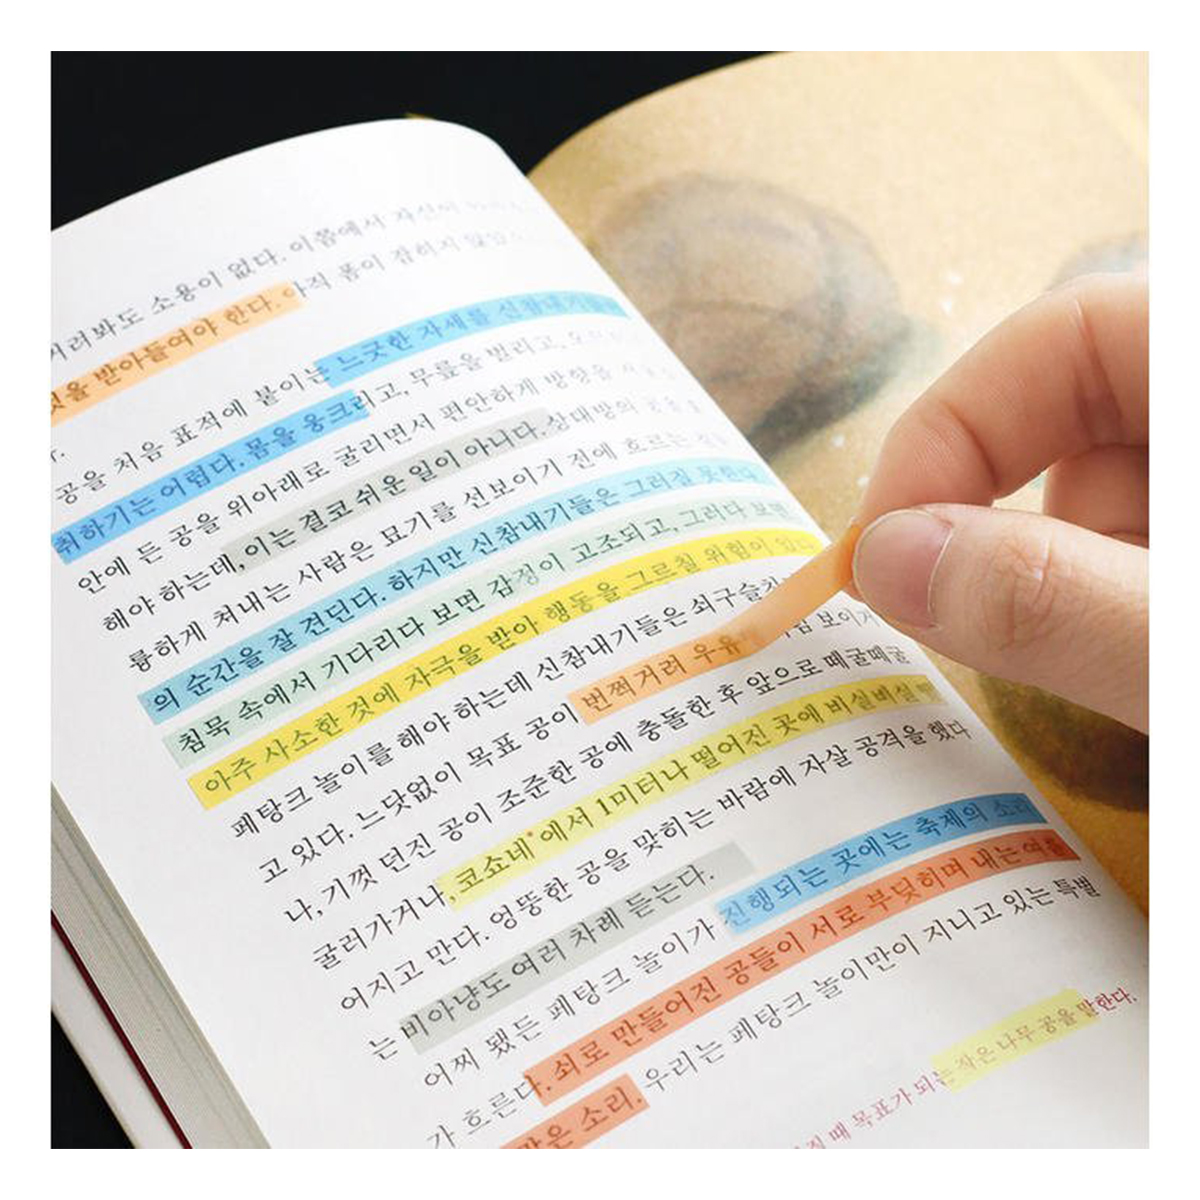 려봐도 소용이 없다. 이쯤에서 자신이
것을 받아들여야 한다. 아직 폼이 잡히지 않았
다.
공을 처음 표적에 붙이는 느긋한 자세를 신참내기들이
취하기는 어렵다. 몸을 웅크리고, 무릎을 벌리고, 손
안에 든 공을 위아래로 굴리면서 편안하게 방향을
해야 하는데, 이는 결코 쉬운 일이 아니다. 상대방의 공을
륭하게 쳐내는 사람은 묘기를 선보이기 전에 흐르는
의 순간을 잘 견딘다. 하지만 신참내기들은 그러질 못한다.
침묵 속에서 기다리다 보면 감정이 고조되고, 그러다 보면
아주 사소한 것에 자극을 받아 행동을 그르칠 위험이 있다.
페탕크 놀이를 해야 하는데 신참내기들은 쇠구슬
고 있다. 느닷없이 목표 공이 번쩍거려 우유 보이기
나, 기껏 던진 공이 조준한 공에 충돌한 후 앞으로 떼굴떼굴
굴러가거나, 코쇼네*에서 1미터나 떨어진 곳에 비실비실
어지고 만다. 엉뚱한 공을 맞히는 바람에 자살 공격을 했다
는 비아냥도 여러 차례 듣는다.
어찌 됐든 페탕크 놀이가 진행되는 곳에는 축제의 소리
가 흐른다. 쇠로 만들어진 공들이 서로 부딪히며 내는 여름
맑은 소리. 우리는 페탕크 놀이만이 지니고 있는 특별
질 때 목표가 되는 작은 나무 공을 말한다.